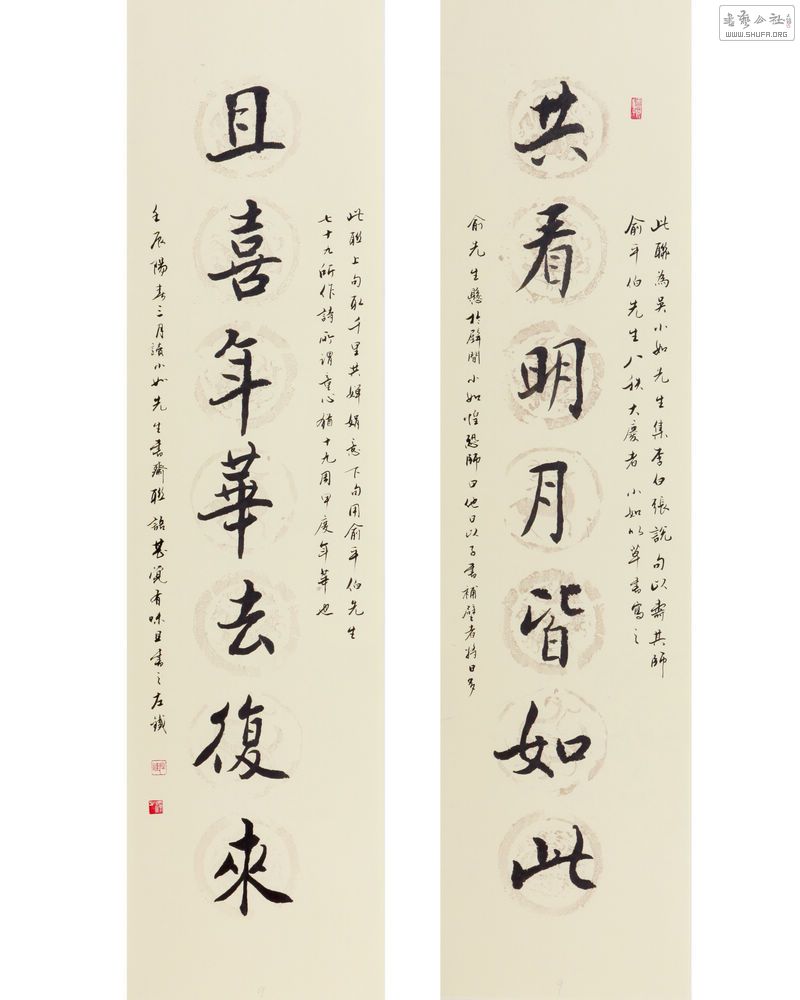 共看明月皆如此
此聯為吳小如先生集李白張說句以壽其師
俞平伯先生八秩大慶者小如以草書寫之
俞先生懸於壁間小如惶恐師曰他日以子書補壁者將日多
且喜年華去復來
此聯上句取千里共嬋娟意下句用俞平伯先生
七十九所作詩所謂童心猶十九周甲慶年華也
壬辰陽春三月讀小如先生書齋聯語甚覺有味且書之左識
書法公社
WWW.SHUFA.ORG